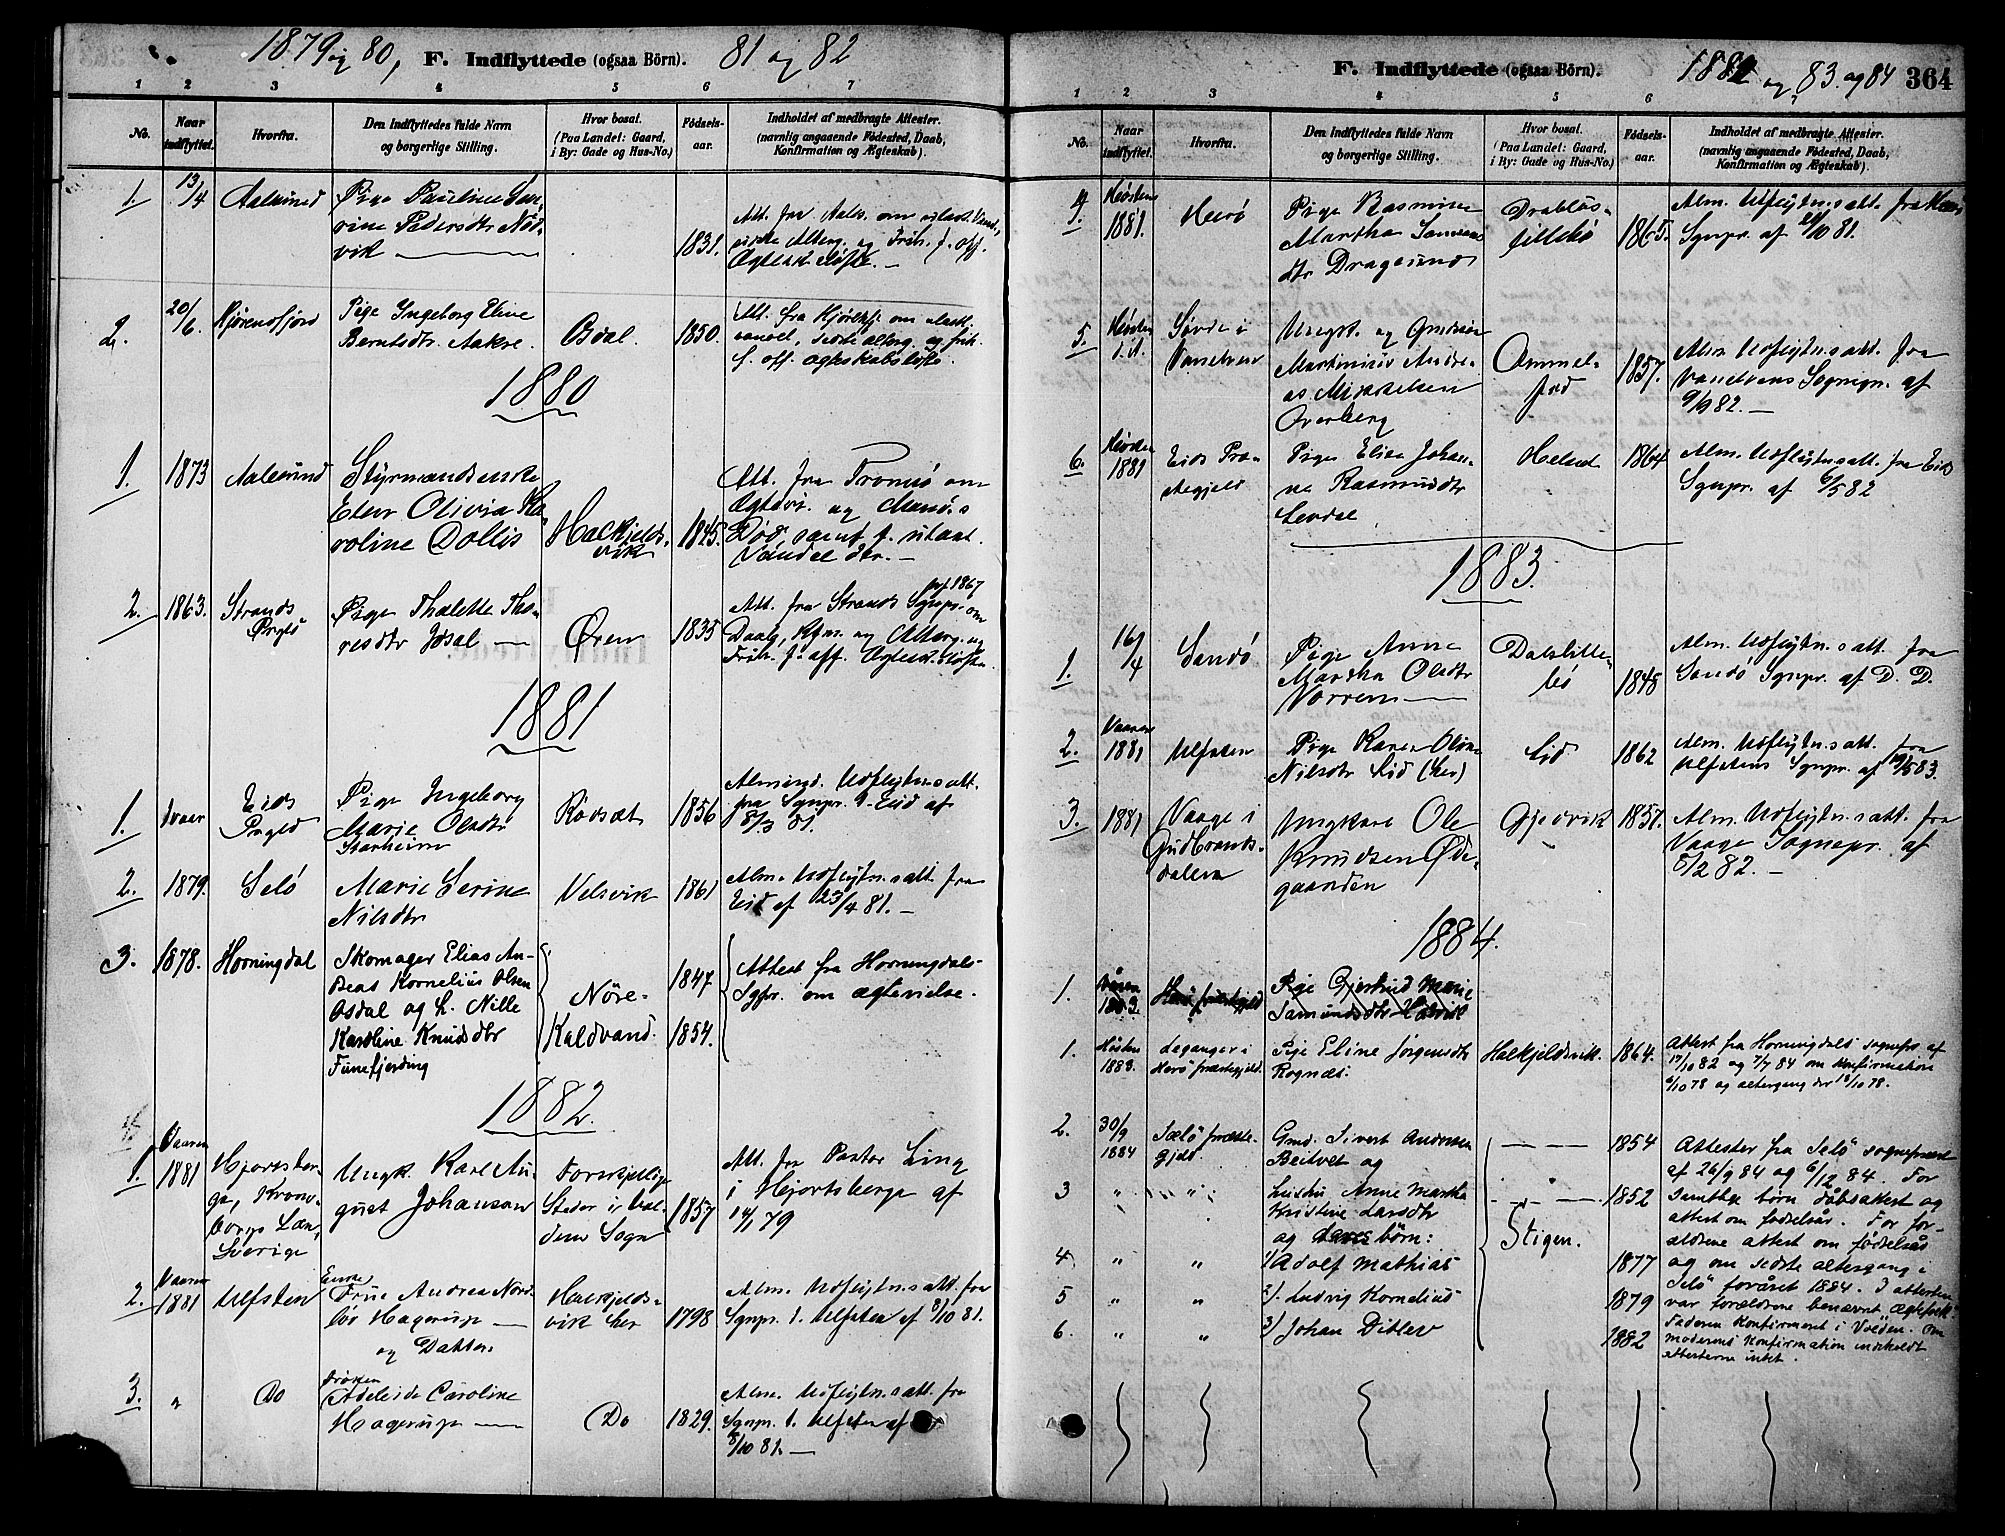 1879 og 80, F. Indflyttede (ogsaa Börn). 81 og 82
1 2 3 4 5 6 7
No.
Naar indflyttet.
Hvorfra.
Den Indflyttedes fulde Navn
og borgerlige Stilling.
Hvor bosat.
(Paa Landet: Gaard,
i By: Gade og Hus-No.)
Fødsels-
aar.
Indholdet af medbragte Attester.
(navnlig angaaende Födested, Daab,
Konfirmation og Ægteskab).
1. 13/4 Aalesund Pige Pauline Se-
verine Pedersdtr Nod-
vik 1831.
Att. fra Aales. om
sidste Alterg. og Frih. f. off.
Ægtesk. Løfte. —
2. 20/6. Hjørendfjord Pige Ingeborg Eline
Berntsdtr. Aakre. Osdal. 1850.
Att. fra Hjørendfj. om ulast.
vandel, sidste alterg. og frih.
f. off. ægteskabsløfte.
1880
1. 1873 Aalesund Styrmandsenke
Elen Olivia Ka-
roline Dollis Halkjelds-
vik 1845.
Att. fra Tromsø om
Ægtevi. og Mands
Død, samt f. ulast.
Vandel der. —
2. 1863. Strands
Prgld Pige Thalette Tho-
resdtr Ydsal — Ören 1835
Att. fra Strands Sgnpr. om
Daab, Kfm. og Alterg. og
Frih. f. off. Ægtesk. Løfte.
1881
1. Ivaar Eids
Prgld Pige Ingeborg
Marie Olsdtr
Starheim Rødsæt 1856
Almind. Udflytn.s att.
fra Sgnpr. i Eid af
8/3 81.
2. 1879. Selö Marie Serine
Nilsdtr Velsvik 1861
Alm. Udflytn.s att. fra
Eid af 23/4 81. —
3. 1878. Horningdal Skomager Elias An-
dreas Kornelius Olsen
Osdal og h. Nille
Karoline Knudsdtr
Funefjerding
Nöre-
Kaldvand. 1847
1854.
Attest fra Horningdals
Sgpr. om ægtevielse.
1882.
1. Vaaren
1881 Hjortsber-
ga, Krono-
borgs Læn,
Sverige Ungk. Karl Au-
gust Johanson Forskjellige
Steder i Vol-
dens Sogn 1857
Att. fra Pastor Ling
i Hjortsberga af
14/1 79
2. Vaaren
1881 Ulfsten Enke
Frue Andrea Nord-
lör Hagerup —
og Datter Halkjelds-
vik her 1798
Alm. Udflytn.s att. fra
Sgnpr. i Ulfsten af 8/10 81.
3. " Do Frøken
Adeleide Caroline
Hagerup — Do 1829.
Alm. Udflytn.s att. fra
Sgnpr. i Ulfsten af
8/10 81. —
F. Indflyttede (ogsaa Börn). 1882 og 83. og 84 364
1 2 3 4 5 6 7
No.
Naar indflyttet.
Hvorfra.
Den Indflyttedes fulde Navn
og borgerlige Stilling.
Hvor bosat.
(Paa Landet: Gaard,
i By: Gade og Hus-No.)
Fødsels-
aar.
Indholdet af medbragte Attester.
(navnlig angaaende Födested, Daab,
Konfirmation og Ægteskab).
4. Hösten
1881. Herö Pige Rasmine
Martha
dtr Dragsund Drabløs-
1865.
Alm. Udflytn.s att. fra Herö
Sgnpr. af 10 81.
5. Hösten Søvde i
Vanelven Ungk. og Gmdssøn
Martinius Andre-
as Mikkelsen
Overberg Ammel-
1857.
Alm. Udflytn.s att. fra
Vanelvens Sognepr. af
9/9 82. —
6. Hösten
1881 Eids Præ-
stegjeld Pige Elise Johan-
ne Rasmusdtr
Levdal Helset 1864
Alm. Udflytn.s att. fra Eids
Sgnpr. af 6/5 82
1883.
1. 16/4 Sandö Pige Anne
Martha Olsdtr
Norren — Dalslille-
bö 1848
Alm. Udflytn.s att. fra
Sandö Sgnpr. af D. D.
2. Vaaren
1881 Ulfsten Pige Karen Oline
Nilsdtr Lid (her) Lid 1862
Alm. Udflytn.s att. fra
Ulfstens Sgnpr. af 19/5 83.
3. 1881 Vaage i
Gudbrands-
dalen Ungkarl Ole
Knudsen Øde-
gaarden Gjerdvik 1857.
Alm. Udflytn.s att. fra
Vaage Sognepr. af
5/12 82. —
1884.
1. Våren
1883. Herö præstegjeld Pige Gjertrud Marie
Samundsdtr
1. Hösten
1883. Leganger i
Herö præstegjeld. Pige Eline Jørgensdtr
Rognæs. Halkjeldsvik. 1864.
Attest fra Horningdals sognepr. af
17/10 82 og 7/7 84 om konfirmation
6/10 78 og altergang der 13/10 78.
2. 30/9
1884 Sælö præste-
gjeld Gmd. Sivert Andersen
Beitvet og — — — 1854
3 " " " hustru Anne Martha
Kristine Larsdtr — " — 1852
og deres börn: Stigen.
4 " " 1) Adolf Mathias 1877
5 " " 2). Ludvig Kornelius 1879
6. " " 3) Johan Ditlev 1882
Attester fra Selö sognepræst
af 26/9 84 og 6/12 84. For
samtlige börn dåbsattest og
attest om födelsår. For for-
ældrene attest om fødselsår
og om sidste altergang i
Selö foråret 1884. I attesten
var forældrene benævnt ægtefolk.
Faderen konfirmeret i Volden. Om
moderens konfirmation indeholdt
attesterne intet.